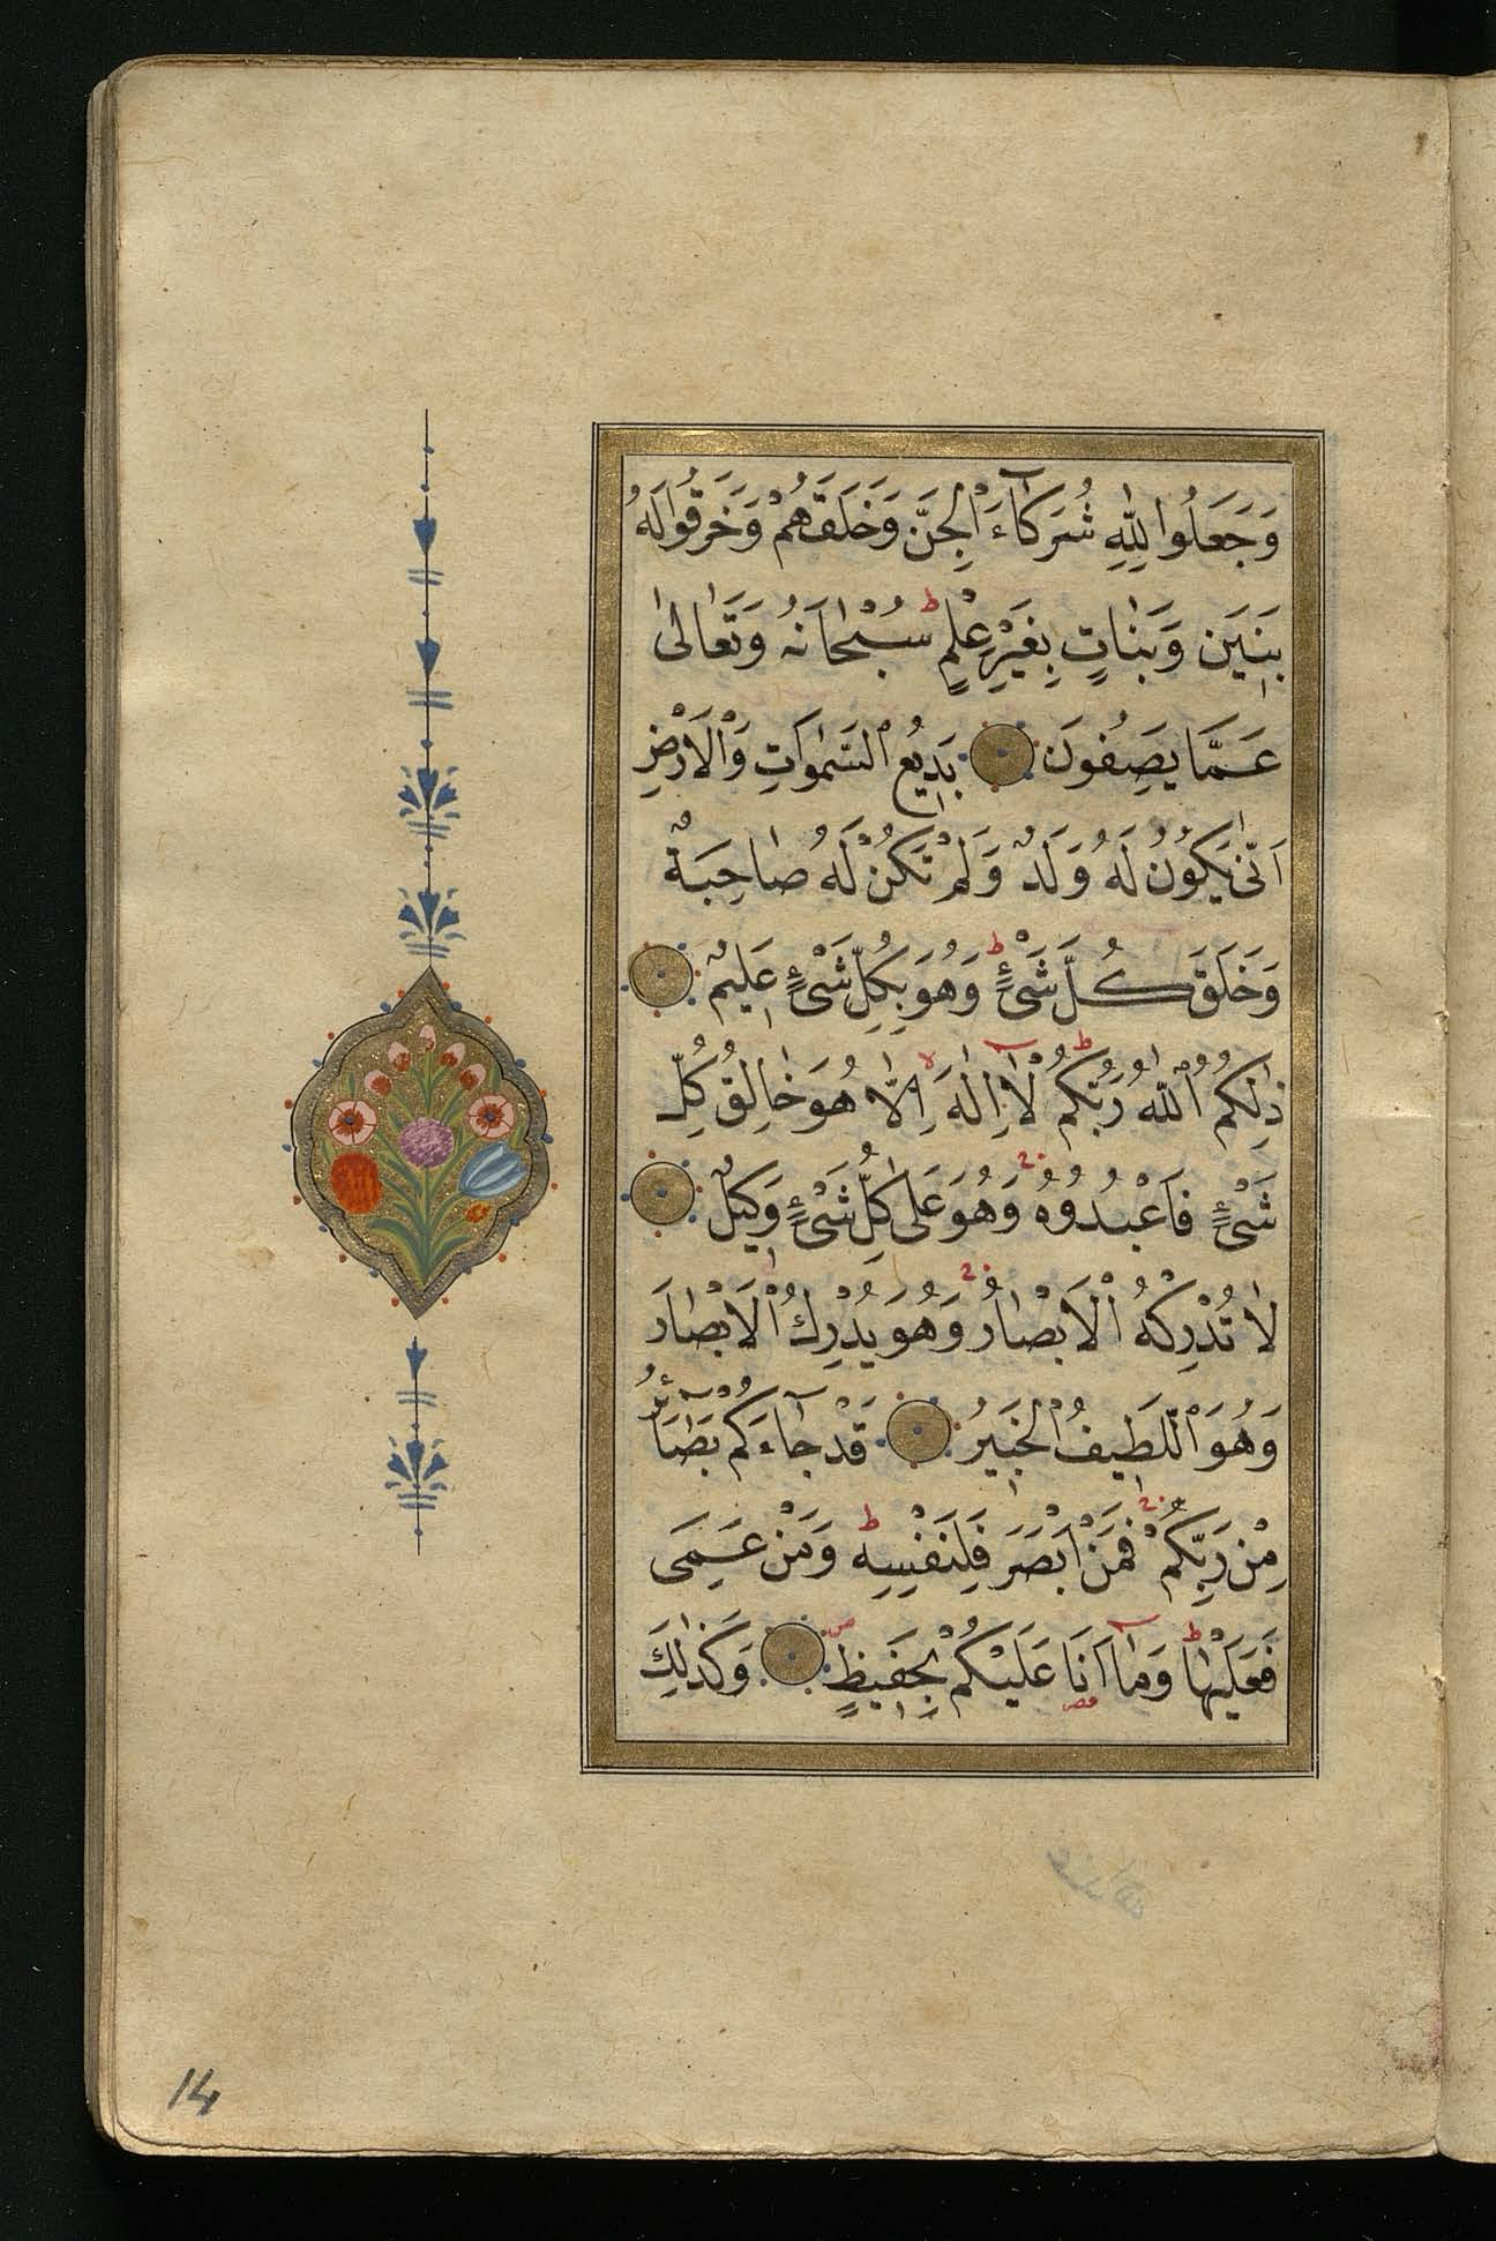 وَجَعَلُوا لِلّٰهِ شُرَكَاۤءَ الْجِنَّ وَخَلَقَهُمْ وَخَرَقُوا لَهُ
بَنِينَ وَبَنٰاتٍ بِغَيْرِ عِلْمٍ ط سُبْحٰانَهُ وَتَعٰالىٰ
عَمَّا يَصِفُونَ بَدِيعُ السَّمٰوَاتِ وَالْاَرْضِ
اَنّٰى يَكُونُ لَهُ وَلَدٌ وَلَمْ تَكُنْ لَهُ صٰاحِبَةٌ
وَخَلَقَ كُلَّ شَىْءٍ ط وَهُوَ بِكُلِّ شَىْءٍ عَلِيمٌ
ذٰلِكُمُ اللّٰهُ رَبُّكُمْ ط لٰاۤ اِلٰهَ اِلّٰا هُوَ خٰالِقُ كُلِّ
شَىْءٍ فَاعْبُدُوهُ وَهُوَ عَلٰى كُلِّ شَىْءٍ وَكِيلٌ
لٰا تُدْرِكُهُ الْاَبْصٰارُ وَهُوَ يُدْرِكُ الْاَبْصٰارَ
وَهُوَ اللَّطِيفُ الْخَبِيرُ قَدْ جٰاۤءَكُمْ بَصَاۤئِرُ
مِنْ رَبِّكُمْ فَمَنْ اَبْصَرَ فَلِنَفْسِهِ ط وَمَنْ عَمِىَ
فَعَلَيْهٰا ط وَمٰاۤ اَنَا عَلَيْكُمْ بِحَفِيظٍ وَكَذٰلِكَ
14